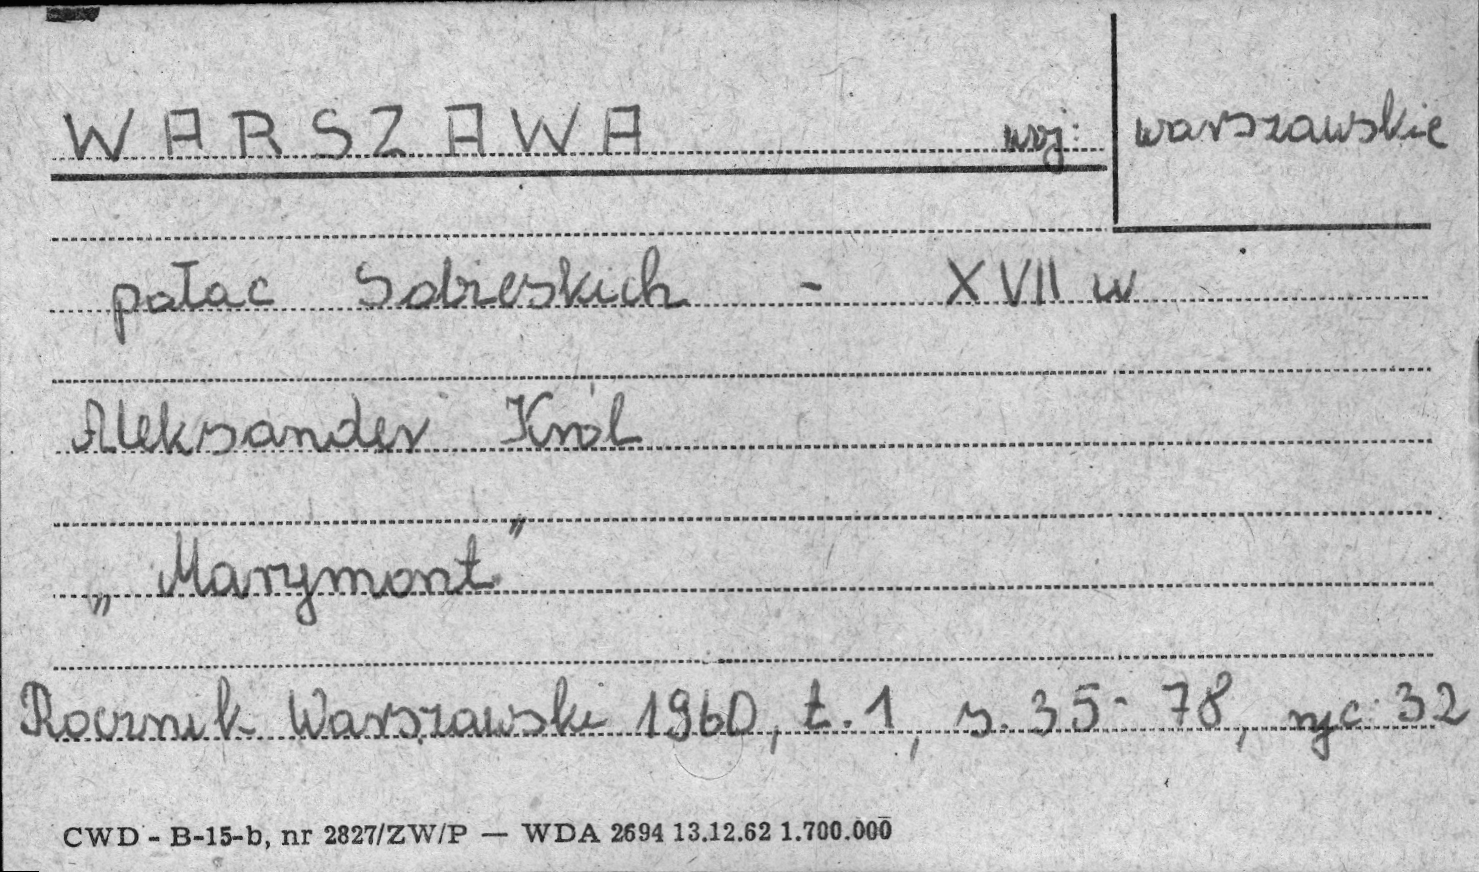 WARSZAWA woj: warszawskie
pałac Sobieskich - XVII w
Aleksander Król
„Marymont”
Rocznik Warszawski 1960, t. 1, s. 35-78, ryc 32
CWD - B-15-b, nr 2827/ZW/P — WDA 2694 13.12.62 1.700.000